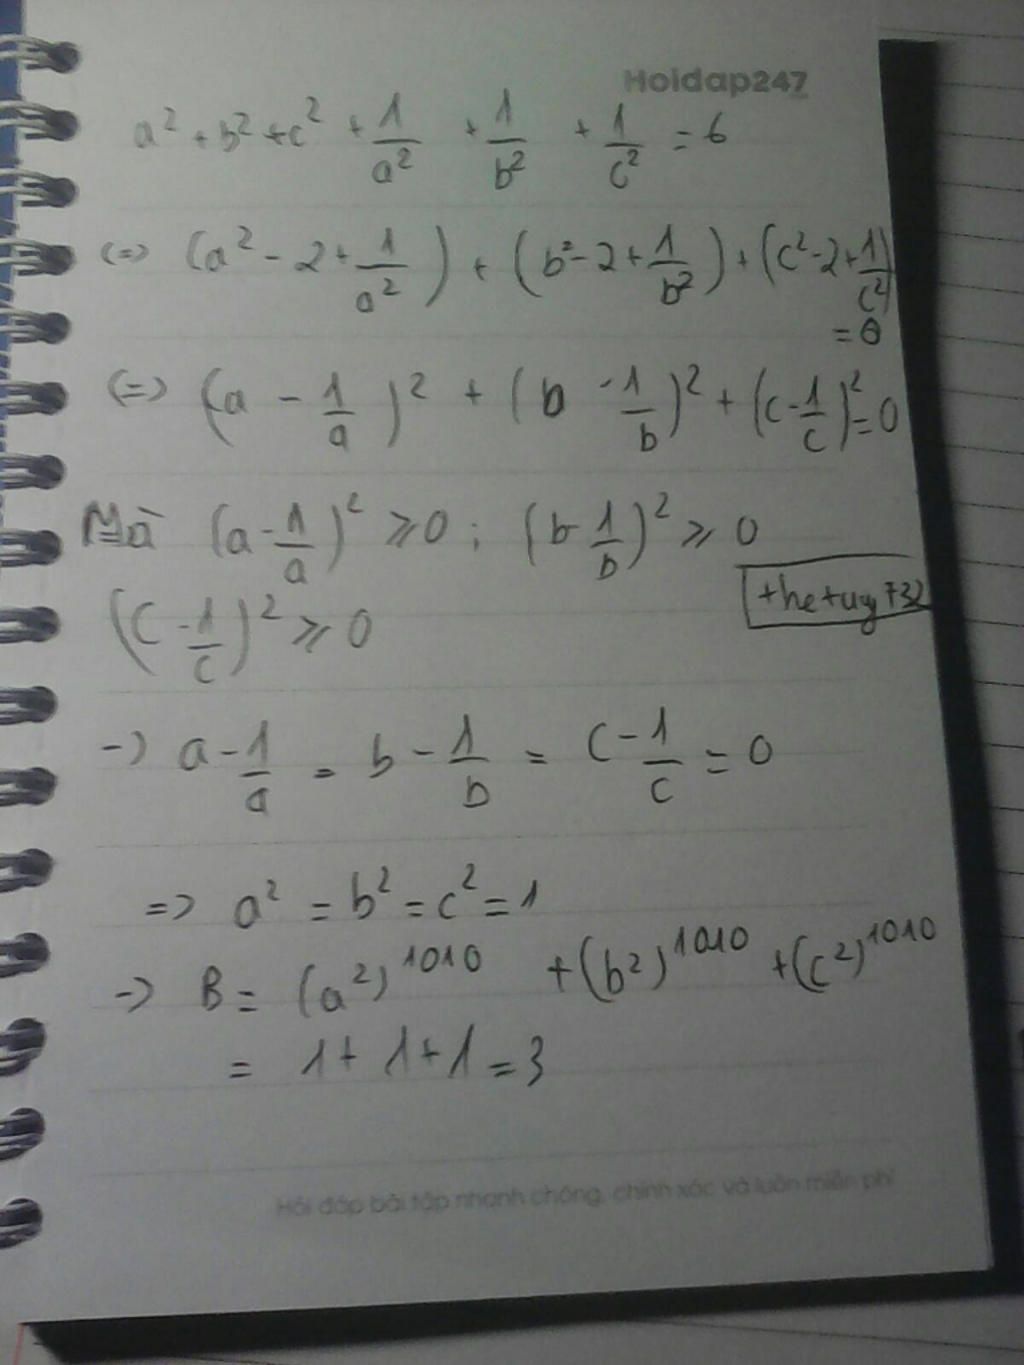 Hoidap247
a² + b² + c² + 1/a² + 1/b² + 1/c² = 6
(=) (a² - 2 + 1/a²) + (b² - 2 + 1/b²) + (c² - 2 + 1/c²)
= 0
(=) (a - 1/a)² + (b - 1/b)² + (c - 1/c)² = 0
Mà (a - 1/a)² ⩾ 0 ; (b - 1/b)² ⩾ 0
thetuy732
(c - 1/c)² ⩾ 0
-) a - 1/a = b - 1/b = c - 1/c = 0
=> a² = b² = c² = 1
-) B = (a²)¹⁰¹⁰ + (b²)¹⁰¹⁰ + (c²)¹⁰¹⁰
= 1 + 1 + 1 = 3
Hỏi đáp bài tập nhanh chóng, chính xác và luôn miễn phí